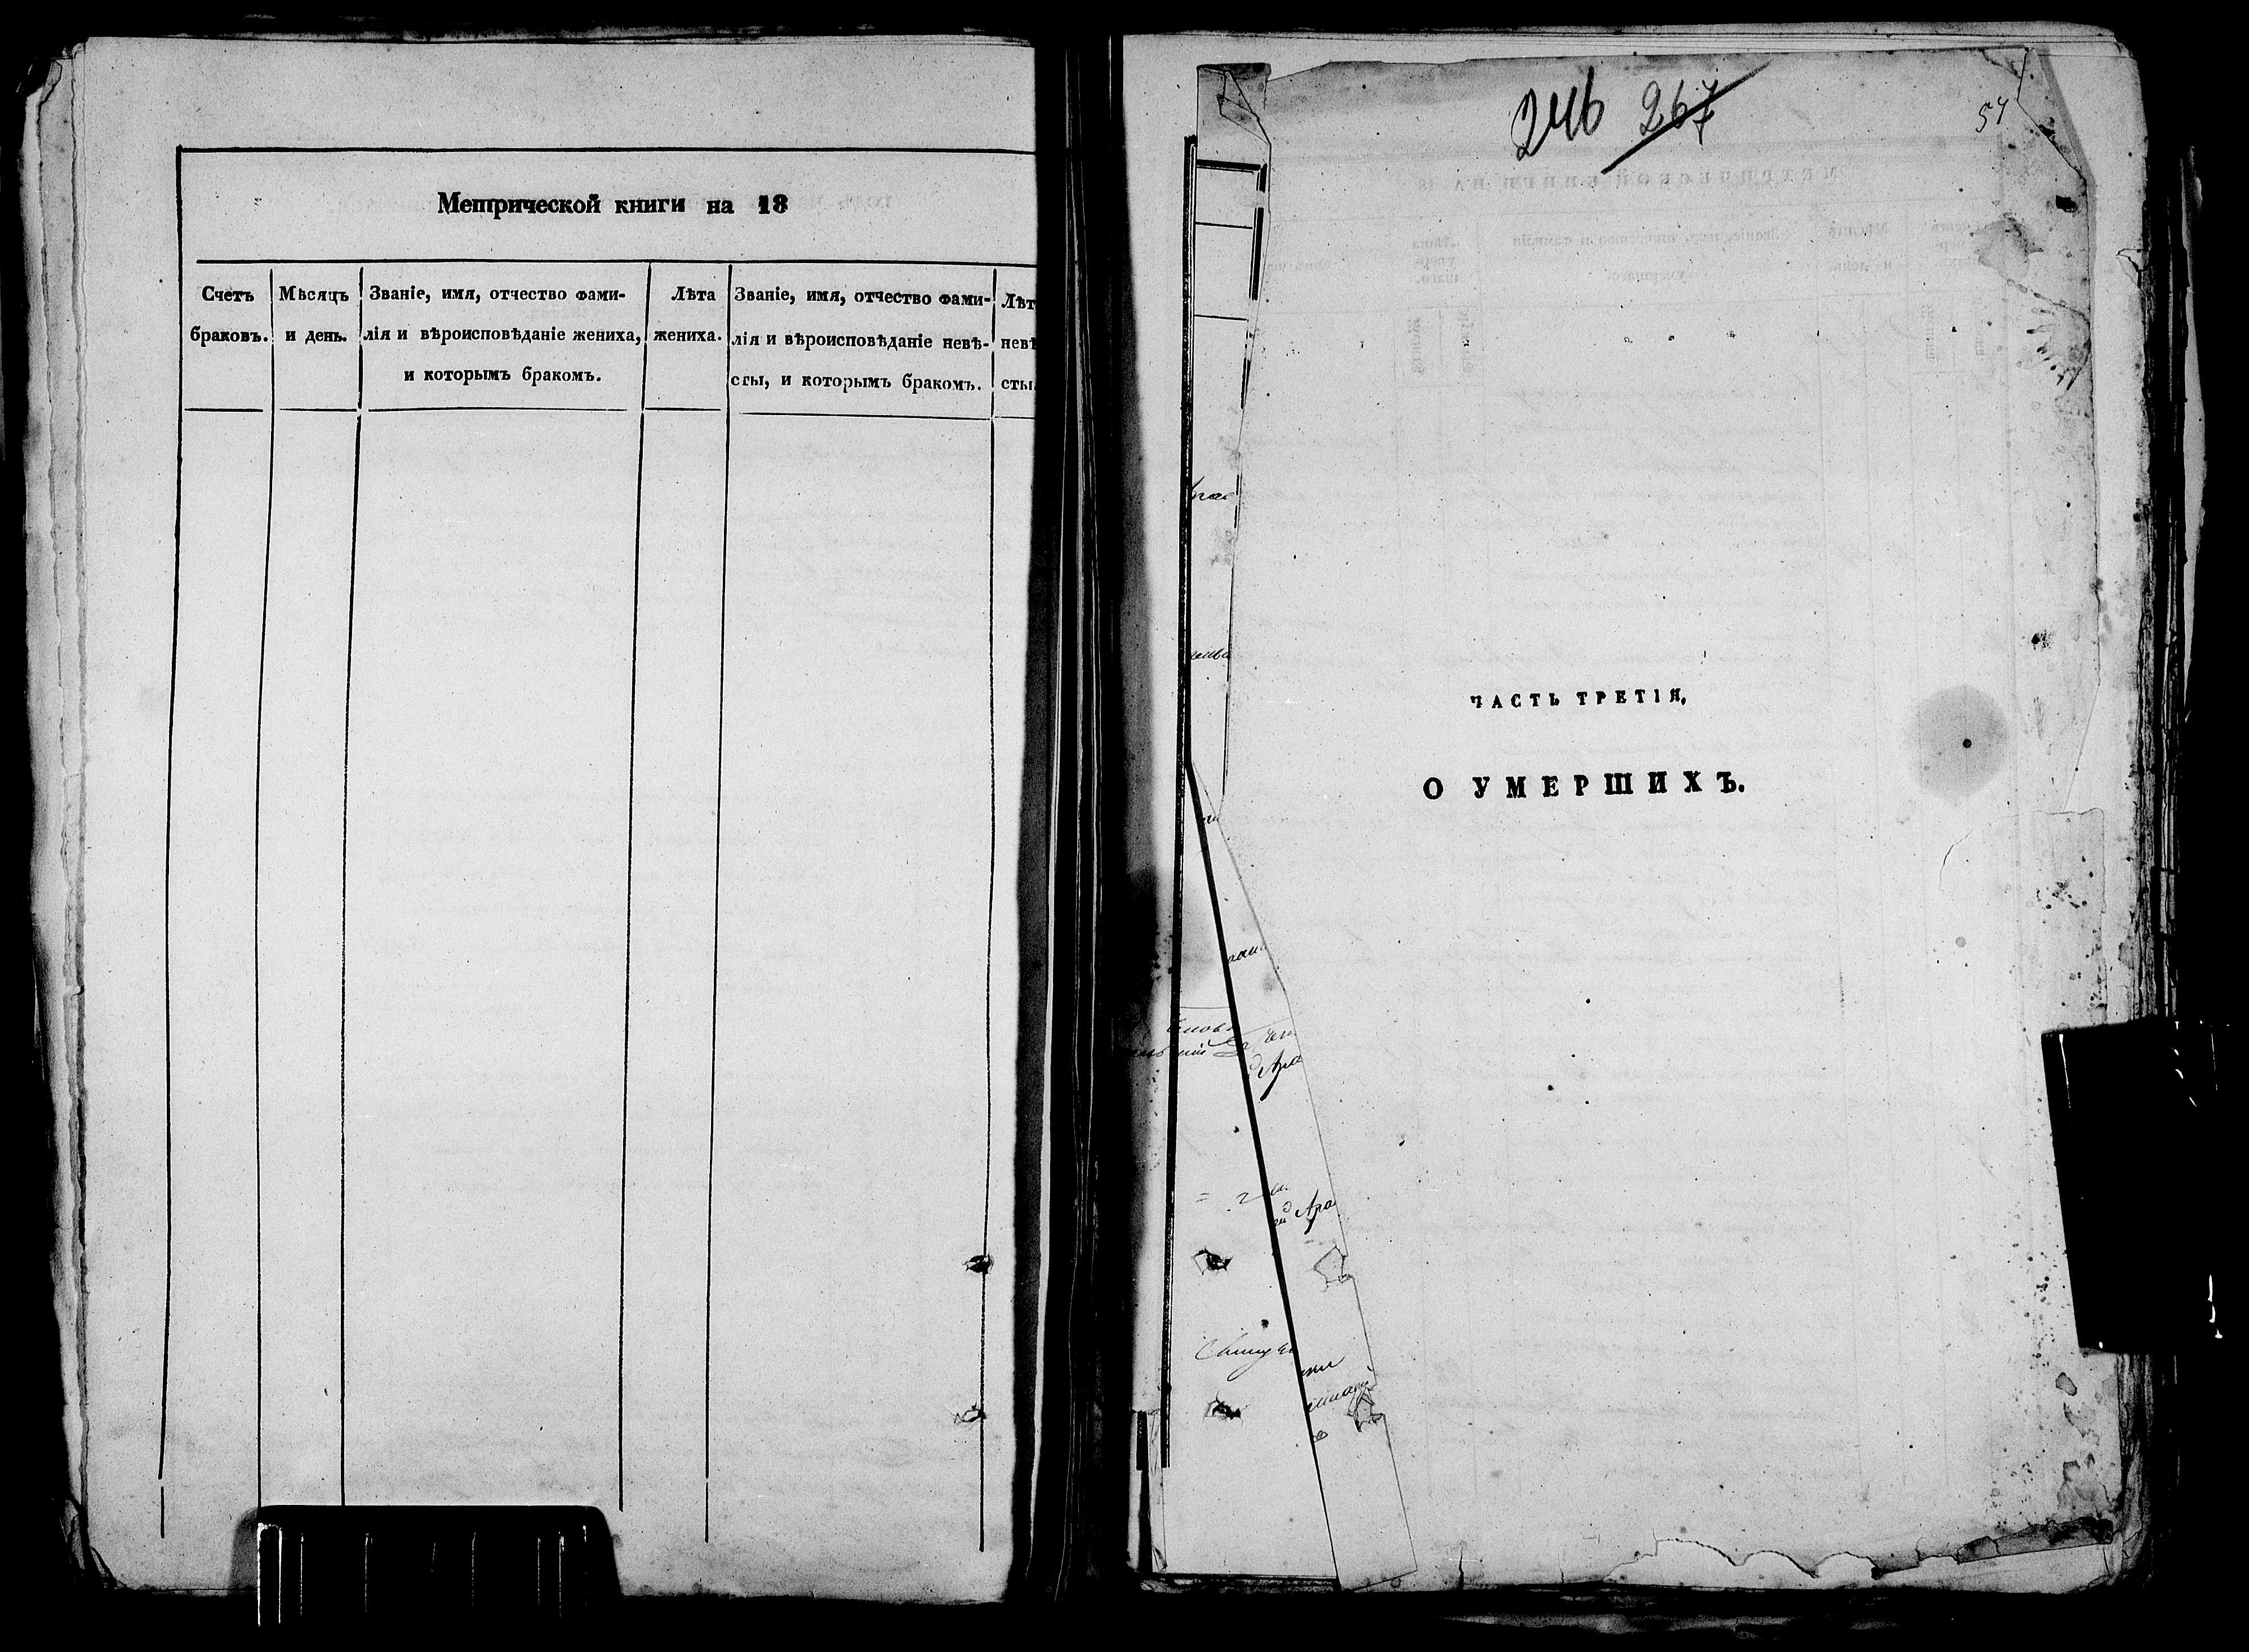 Метрической книги на 18
Счетъ браковъ.
Мѣсяцъ и день.
Званіе, имя, отчество фами-
лія и вѣроисповѣданіе жениха,
и которымъ бракомъ.
Лѣта
жениха.
Званіе, имя, отчество фами-
лія и вѣроисповѣданіе невѣ-
сты, и которымъ бракомъ.
Лѣт
невѣ
сты.
246 267
57
ЧАСТЬ ТРЕТІЯ,
О УМЕРШИХЪ.